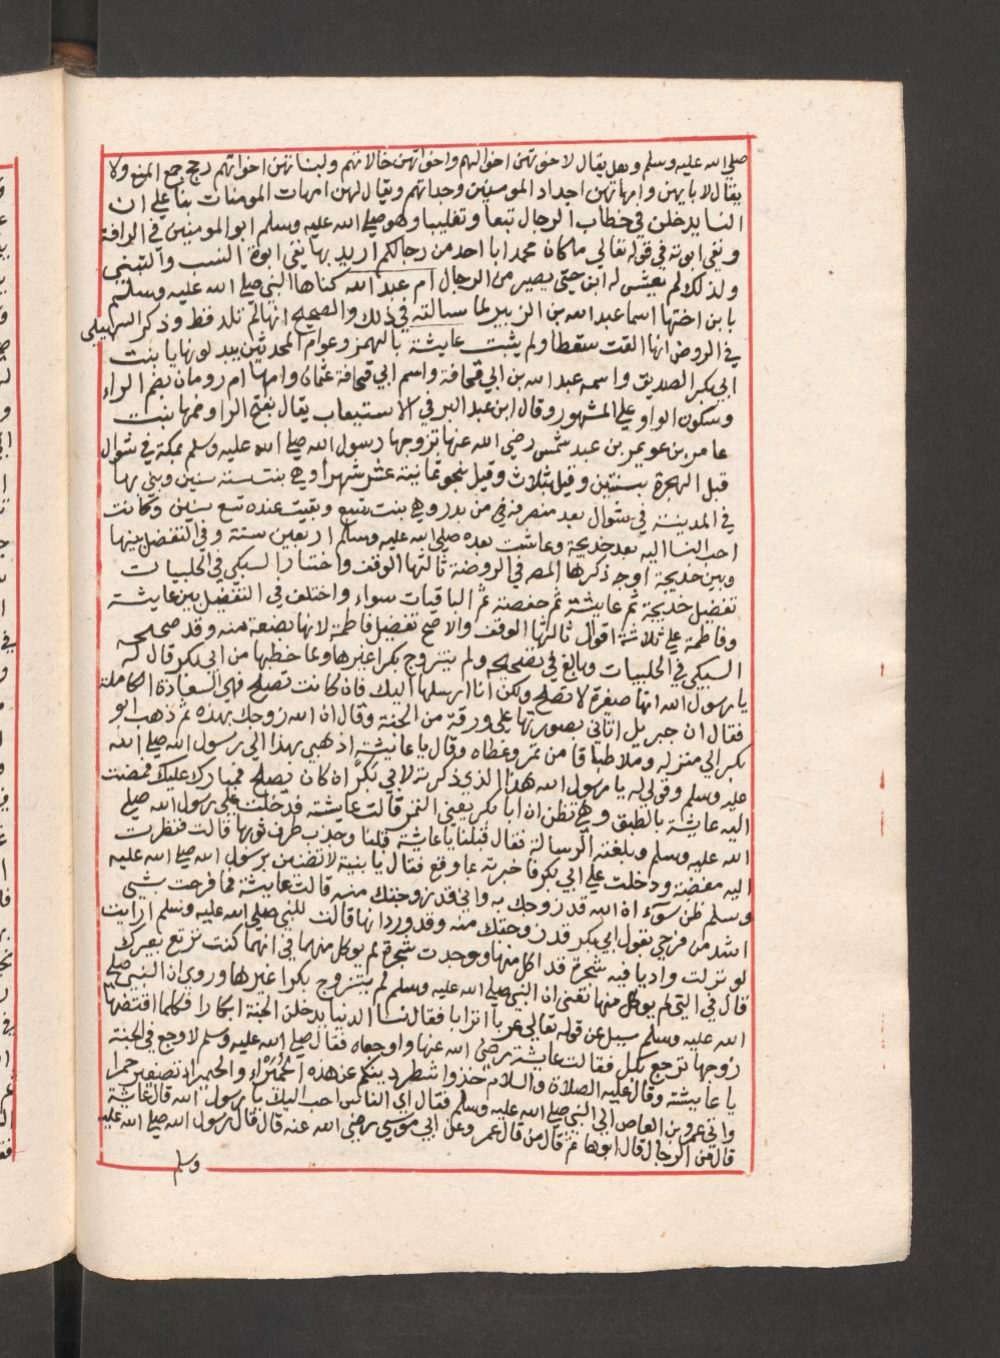 صلي الله عليه وسلم وهل يقال لاخوتهن اخوالهم واخواتهن خالاتهم ولبناتهن اخواتهم رجح جمع المنع ولا
يقال لابايهن وامهاتهن اجداد المومنين وجداتهم ويقال لهن امهات المومنات بناء علي ان
النسا يدخلن في خطاب الرجال تبعا وتغليبا وهو صلي الله عليه وسلم ابو المومنين في الرافة
ونفي ابوته في قوله تعالي ما كان محمد ابا احد من رجالكم اريد بها نفي ابوة النسب والتبني
ولذلك لم يعش له ابن حتي يصير من الرجال ام عبد الله كناها النبي صلي الله عليه وسلم
بابن اختها اسما عبد الله بن الزبير لما سالته في ذلك والصحيح انها لم تلد قط وذكر السهيلي
في الروض انها القت سقطا ولم يثبت عايشة بالهمز وعوام المحدثين يبدلونها يا بنت
ابي بكر الصديق واسمه عبد الله بن ابي قحافة واسم ابي قحافة عثمان وامها ام رومان بضم الراء
وسكون الواو علي المشهور وقال ابن عبد البر في الاستيعاب يقال بفتح الرا وضمها بنت
عامر بن عويمر بن عبد شمس رضي الله عنها تزوجها رسول الله صلي الله عليه وسلم بمكة في شوال
قبل الهجرة بسنتين وقيل بثلاث وقيل بنحو ثمانية عشر شهرا وهي بنت ستة سنين وبني بها
في المدينة في شوال بعد منصرفه من بدر وهي بنت تسع وبقيت عنده تسع سنين وكانت
احب النسا اليه بعد خديجة وعاشت بعده صلي الله عليه وسلم اربعين سنة وفي التفضيل بينها
وبين خديجة اوجه ذكرها المصـ في الروضة ثالثها الوقف واختار السبكي في الحلبيات
تفضيل خديجة ثم عايشة ثم حفصة ثم الباقيات سواء واختلف في التفضيل بين عايشة
وفاطمة علي ثلاثة اقوال ثالثها الوقف والاصح تفضيل فاطمة لانها بضعة منه وقد صححه
السبكي في الحلبيات وبالغ في تصحيحه ولم يتزوج بكرا غيرها ولما خطبها من ابي بكر قال له
يا رسول الله انها صغيرة لا تصلح ولكن انا ارسلها اليك فان كانت تصلح فهي السعادة الكاملة
فقال ان جبريل اتاني بصورتها علي ورقة من الجنة وقال ان الله زوجك بهذه ثم ذهب ابو
بكر الي منزله وملا طباقا من تمر وغطاه وقال يا عائشة اذهبي بهذا الي رسول الله صلي الله
عليه وسلم وقولي له يا رسول الله هذا الذي ذكرته لابي بكر ان كان يصلح فمبارك عليك فمضت
اليه عايشة بالطبق وهي تظن ان ابا بكر يعني التمر قالت عايشة فدخلت علي رسول الله صلي
الله عليه وسلم وبلغته الرسالة فقال قبلنا يا عايشة قبلنا وجذب طرف ثوبها قالت فنظرت
اليه مغضبة ودخلت علي ابي بكر فاخبرته بما وقع فقال يا بنية لا تظنين برسول الله صلي الله عليه
وسلم ظن سوء ان الله قد زوجك به واني قد زوجتك منه قالت عايشة فما فرحت بشي
اشد من فرحي بقول ابي بكر قد زوجتك منه وقد ورد انها قالت للنبي صلي الله عليه وسلم ارايت
لو نزلت واديا فيه شجرة قد اكل منها ووجدت شجرة لم يوكل منها في ايهما كنت ترتع بعيرك
قال في التي لم يوكل منها تعني ان النبي صلي الله عليه وسلم لم يتزوج بكرا غيرها وروي ان النبي صلي
الله عليه وسلم سيل عن قوله تعالي عربا اترابا فقال نسا الدنيا يدخلن الجنة ابكارا فكلما افتضها
زوجها ترجع بكر فقالت عايشة رضي الله عنها واوجعاه فقال صلي الله عليه وسلم لا وجع في الجنة
يا عايشة وقال عليه الصلاة والسلام خذوا شطر دينكم عن هذه الحميراء والحميرا تصغير حمرا
واتي عمرو بن العاص الي النبي صلي الله عليه وسلم فقال اي الناس احب اليك يا رسول الله قال عايشة
قال من الرجال قال ابوها ثم قال من قال عمر وعن ابي موسي رضي الله عنه قال قال رسول الله صلي الله عليه
وسلم